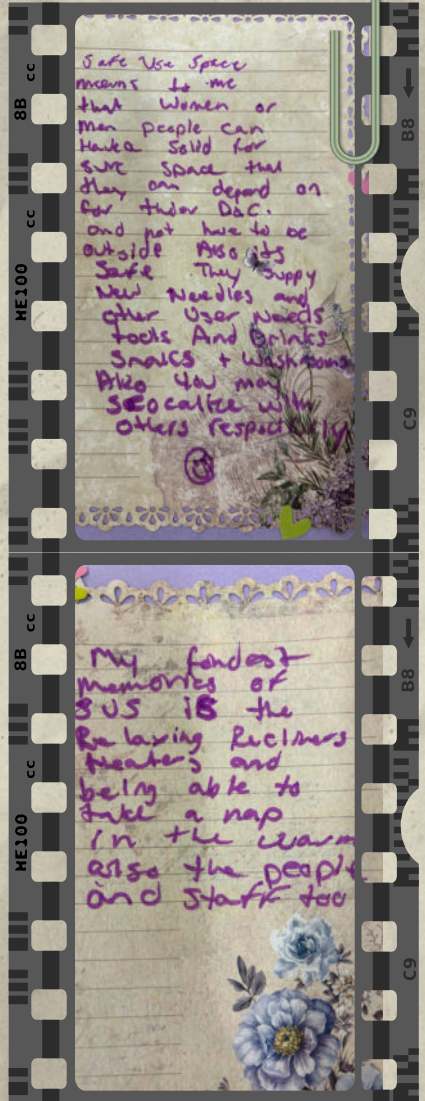 Safe Use Space
means to me
that Women or
Men people can
Have a Solid for
sure space that
they can depend on
for thier D&C.
and not have to be
outside Also its
Safe They supply
New Needles and
other User Needs
tools And Drinks
Snaks + Washrooms
Also You may
Socalize with
others respectfully
My fondest
memories of
SUS is the
Relaxing Recliners
Heaters and
being able to
take a nap
in the warm
also the people
and staff too
8B
cc
HE100
cc
B8
C9
8B
cc
HE100
cc
B8
C9